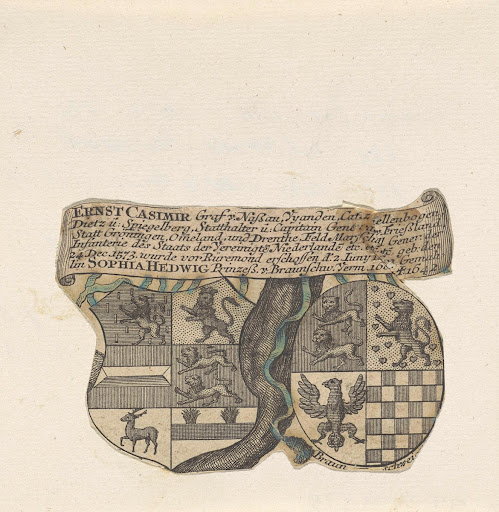 ERNST CASIMIR Graf v. Naßau, Vyanden, Catzellenbogen
Dietz ü. Spiegelberg, Statthalter ü. Capitain Genl v. Frießland
Statt Groningen, Omeland und Drenthe, Feld Marschall General
Infanterie des Staats der Vereinigte Niederlande etc. etc. geb. den
24 Dec. 1573. wurde vor Rüremond erschoßen
SOPHIA HEDWIG Prinzeß. v. Braunschw. Verm. 1607 † 1642
Braun schwei